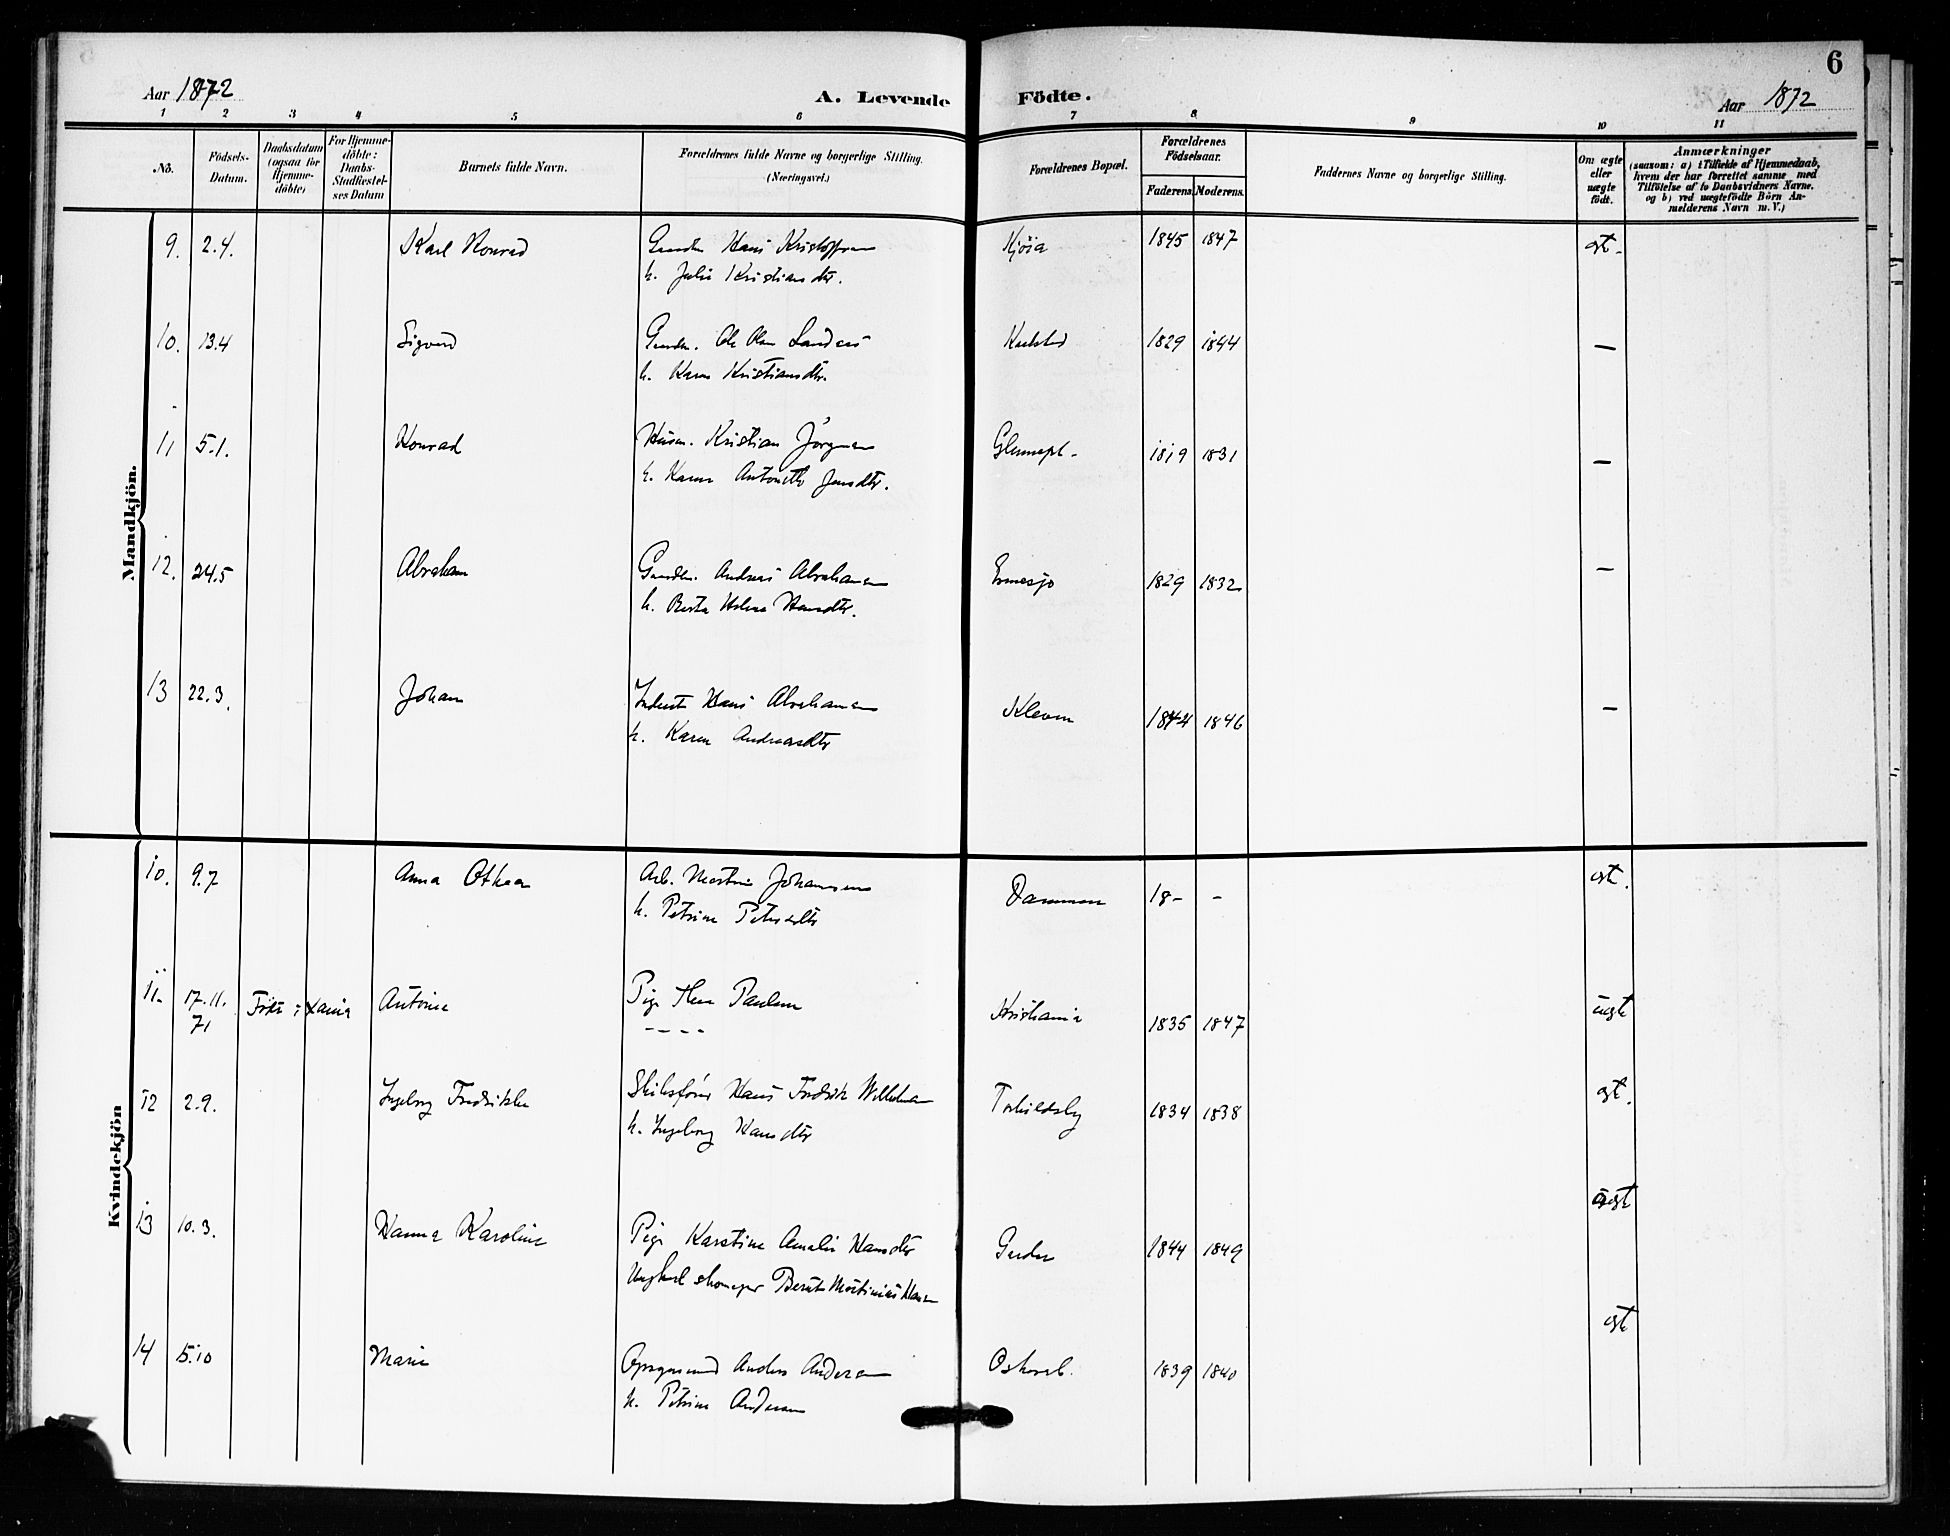 6
Aar 1872
A. Levende Födte.
Aar 1872
1 2 3 4 5 6 7 8 9 10 11
No.
Födsels-Datum.
Daabsdatum (ogsaa for Hjemme-döbte)
For Hjemme-döbte: Daabs-Stadfæstel-ses Datum
Barnets fulde Navn.
Forældrenes fulde Navne og borgerlige Stilling.
(Næringsvei.)
Forældrenes Bopæl.
Forældrenes Födselsaar.
Faderens. Moderens.
Faddernes Navne og borgerlige Stilling.
Om ægte eller uægte födt.
Anmærkninger
(saasom: a) i Tilfælde af Hjemmedaab,
hvem der har forrettet samme med
Tilföielse af to Daabsvidners Navne.
og b) ved uægtefödte Börn An-
melderens Navn m. V.)
Mandkjön.
9. 2.4. Karl Konrad Gaardbr. Hans Kristoffersen Kjöia 1845 1847 ægt.
h. Julie Kristiansdtr.
10. 13.4 Sigvard Gaardbr. Ole Olsen Karlstad 1829 1844 —
h. Karen Kristiansdtr.
11 5.1. Konrad Husm. Kristian Jörgensen 1819 1831 —
h. Karen Antonette Jensdtr.
12. 24.5 Abraham Gaardbr. Andreas Abrahamsen 1829 1832 —
h. Berta Helene Hansdtr.
13 22.3. Johan Inderst Hans Abrahamsen Kleven 1844 1846 —
h. Karen Andreasdtr
Kvindekjön
10. 9.7 Anna Othea Arb. Martin Johannesen Dammen 18- - ægt.
h. Petrine Petersdtr
11. 17.11. 71 Född i Xania Antonie Pige Paulsen Kristiania 1835 1847 uægt
- - - -
12 2.9. Ingeborg Fredrikke Skibsförer Hans Fredrik Wilhelmsen Torkildsby 1834 1838 ægt.
h. Ingeborg Hansdtr
13 10.3. Hanna Karoline Pige Karstine Amalie Hansdtr 1844 1849 uægt
Ungkarl skomager Bernt Martinius Hansen
14 5.10 Marie Opsynsmand Anders Andersen 1839 1840 ægt
h. Petrine Andersen